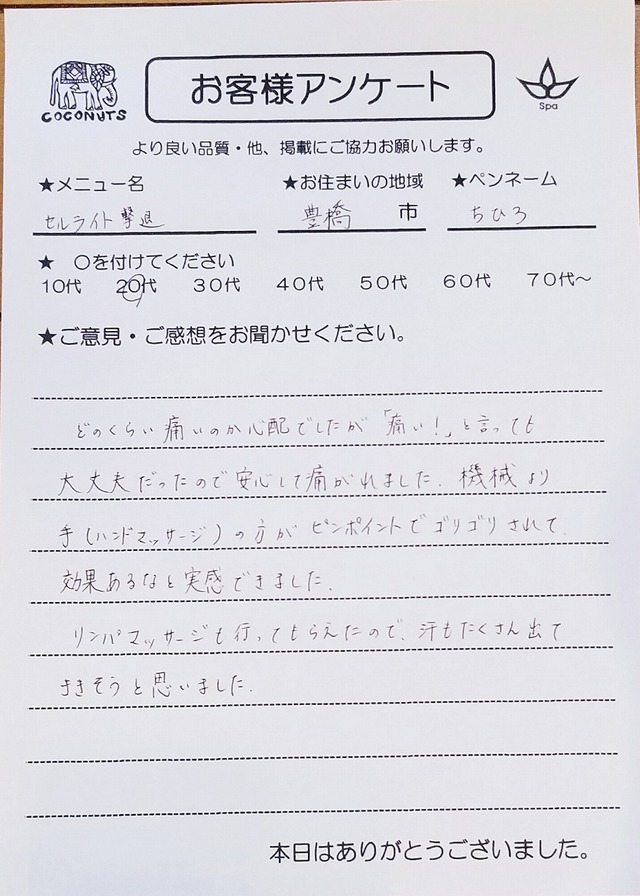 COCONUTS
お客様アンケート
Spa
より良い品質・他、掲載にご協力お願いします。
★メニュー名 ★お住まいの地域 ★ペンネーム
セルライト撃退 豊橋 市 ちひろ
★ 〇を付けてください
10代 20代 30代 40代 50代 60代 70代～
★ご意見・ご感想をお聞かせください。
どのくらい痛いのか心配でしたが「痛い!」と言っても
大丈夫だったので安心して痛がれました。機械より
手(ハンドマッサージ)の方がピンポイントでゴリゴリされて
効果あるなと実感できました。
リンパマッサージも行ってもらえたので、汗もたくさん出て
ききそうと思いました。
本日はありがとうございました。